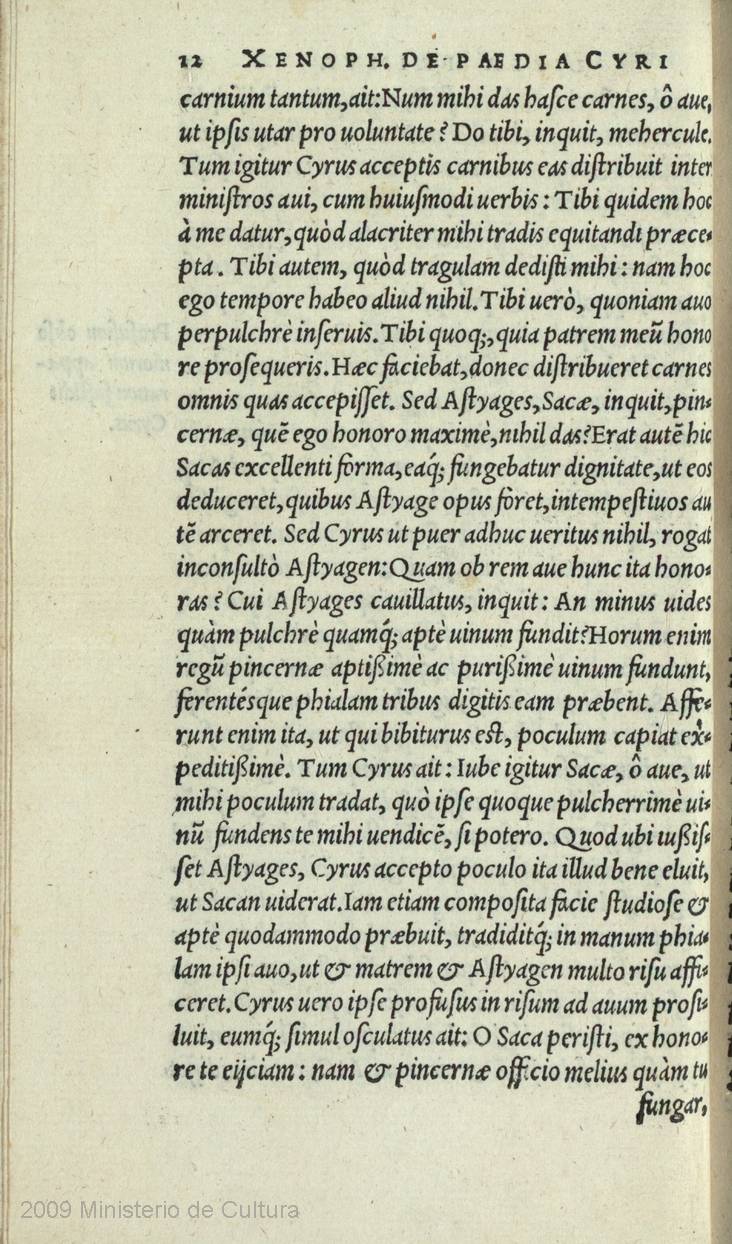 12 XENOPH. DE PAEDIA CYRI
carnium tantum, ait: Num mihi das hasce carnes, ô aue,
ut ipsis utar pro uoluntate? Do tibi, inquit, mehercule.
Tum igitur Cyrus acceptis carnibus eas distribuit inter
ministros aui, cum huiusmodi uerbis: Tibi quidem hoc
à me datur, quòd alacriter mihi tradis equitandi præce-
pta. Tibi autem, quòd tragulam dedisti mihi: nam hoc
ego tempore habeo aliud nihil. Tibi uerò, quoniam auo
perpulchrè inseruis. Tibi quoq;, quia patrem meũ hono
re prosequeris. Hæc faciebat, donec distribueret carnes
omnis quas accepisset. Sed Astyages, Sacæ, inquit, pin-
cernæ, quẽ ego honoro maximè, nihil das? Erat autẽ hic
Sacas excellenti forma, eaq́; fungebatur dignitate, ut eos
deduceret, quibus Astyage opus foret, intempestiuos au
tẽ arceret. Sed Cyrus ut puer adhuc ueritus nihil, rogat
inconsultò Astyagen: Quam ob rem aue hunc ita hono-
ras? Cui Astyages cauillatus, inquit: An minus uides
quàm pulchrè quamq́; aptè uinum fundit? Horum enim
regũ pincernæ aptißimè ac purißimè uinum fundunt,
ferentésque phialam tribus digitis eam præbent. Affe-
runt enim ita, ut qui bibiturus est, poculum capiat ex-
peditißimè. Tum Cyrus ait: Iube igitur Sacæ, ô aue, ut
mihi poculum tradat, quò ipse quoque pulcherrimè ui-
nũ fundens te mihi uendicẽ, si potero. Quod ubi iußis-
set Astyages, Cyrus accepto poculo ita illud bene eluit,
ut Sacan uiderat. Iam etiam composita facie studiose &
aptè quodammodo præbuit, tradiditq́; in manum phia-
lam ipsi auo, ut & matrem & Astyagen multo risu affi-
ceret. Cyrus uero ipse profusus in risum ad auum prosi-
luit, eumq́; simul osculatus ait: O Saca peristi, ex hono-
re te eijciam: nam & pincernæ officio melius quàm tu
fungar,
2009 Ministerio de Cultura